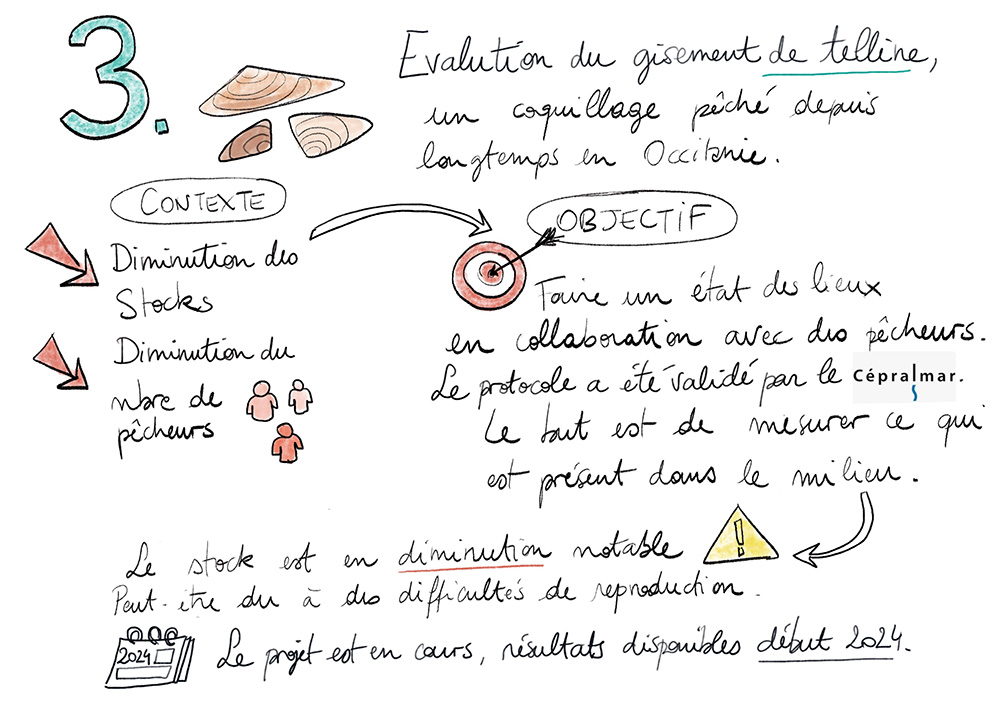 3.
Evalution du gisement de telline,
un coquillage pêché depuis
longtemps en Occitanie.
CONTEXTE
Diminution des
Stocks
Diminution du
nbre de
pêcheurs
OBJECTIF
Faire un état des lieux
en collaboration avec des pêcheurs.
Le protocole a été validé par le Cépralmar.
Le but est de mesurer ce qui
est présent dans le milieu.
!
Le stock est en diminution notable
Peut-être du à des difficultés de reproduction.
2024
Le projet est en cours, résultats disponibles début 2024.